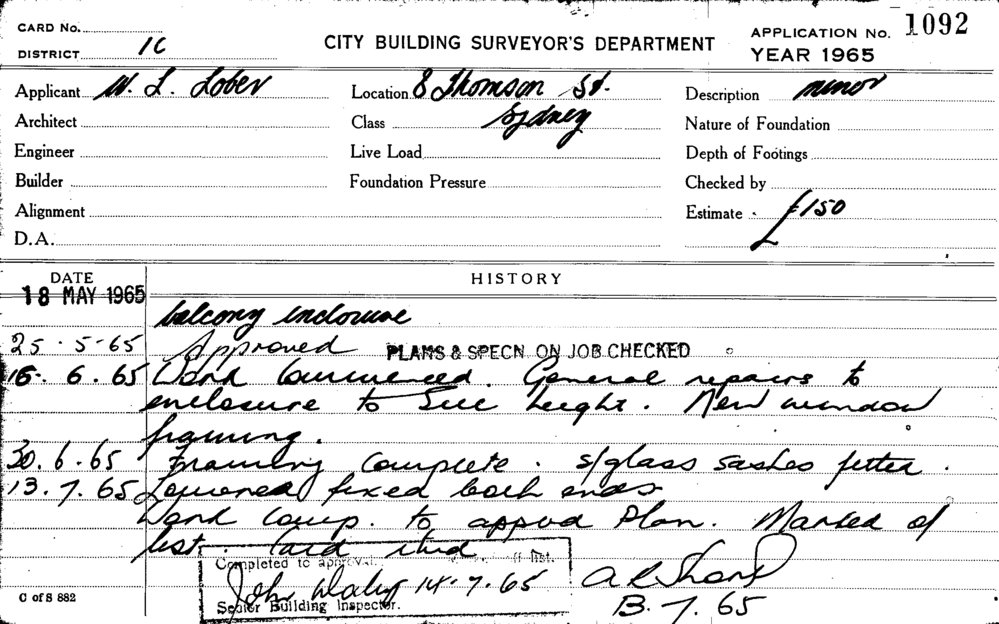 CARD No.
DISTRICT 1C
CITY BUILDING SURVEYOR'S DEPARTMENT
APPLICATION No. 1092
YEAR 1965
Applicant W. L. Lober Location 8 Thomson St. Description minor
Architect Class Sydney Nature of Foundation
Engineer Live Load Depth of Footings
Builder Foundation Pressure Checked by
Alignment Estimate £150
D.A.
DATE HISTORY
18 MAY 1965
balcony inclosure
25.5.65 Approved PLANS & SPECN ON JOB CHECKED
16. 6. 65 Work Commenced. General repairs to
enclosure to Sill height. New window
framing.
30. 6. 65 Framing Complete. s/glass sashes fitted.
13. 7. 65 Louvres fixed both ends
Work Comp. to appvd Plan. Marked of
list. Card
Completed to approval. off list.
John Daley 14.7.65
Senior Building Inspector.
A R Sharp
13. 7. 65
C of S 882